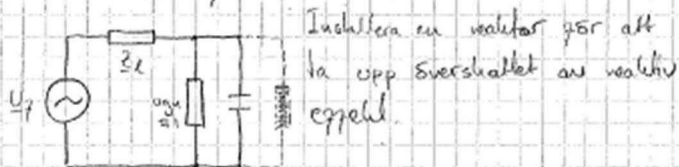 Installera en reaktor för att
ta upp överskottet av reaktiv
effekt.
Z_l
U_f